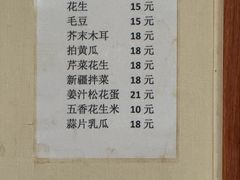 花生 15 元
毛豆 15 元
芥末木耳 18 元
拍黄瓜 18 元
芹菜花生 18 元
新疆拌菜 18 元
姜汁松花蛋 21 元
五香花生米 10 元
蒜片乳瓜 18 元